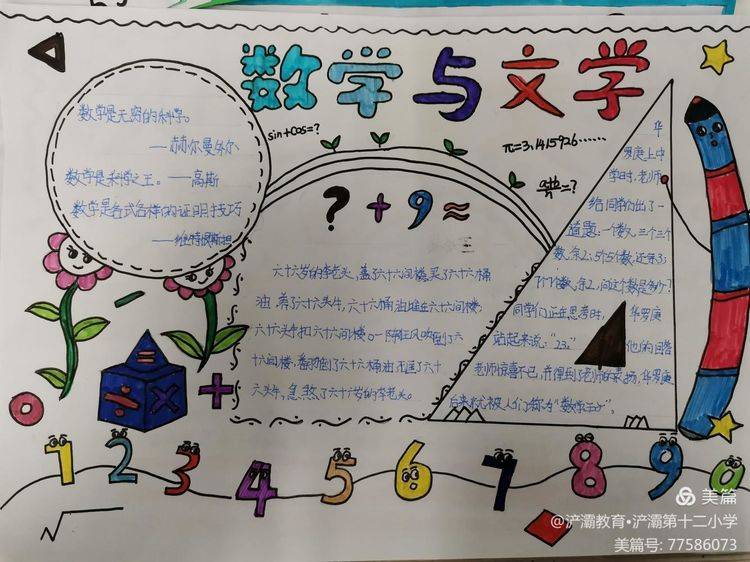 数学与文学
数学是无穷的科学。
——赫尔曼外尔
数学是科学之王。——高斯
数学是各式各样的证明技巧
——维特根斯坦
sin+cos=?
π=3.1415926……
=?
?+9≈
六十六岁的李老头,盖了六十六间楼,买了六十六桶
油,养了六十六头牛,六十六桶油堆在六十六间楼;
六十六头牛扣六十六间楼。一阵狂风吹倒了六
十六间楼,翻倒了六十六桶油,压了六十
六头牛,急煞了六十六岁的李老头。
华
罗庚上中
学时,老师
给同学们出了一
道题:一个数,三个三个
数,余2;5个5个数,还余3;
7个7个数,余2,问这个数是多少?
同学们正在思考时,华罗庚
站起来说:“23。”他的回答
老师惊喜不已,并得到了老师的表扬,华罗庚
后来就被人们称为“数学王子”。
= ÷ × +
1 2 3 4 5 6 7 8 9 0
√
美篇
@浐灞教育·浐灞第十二小学
美篇号: 77586073